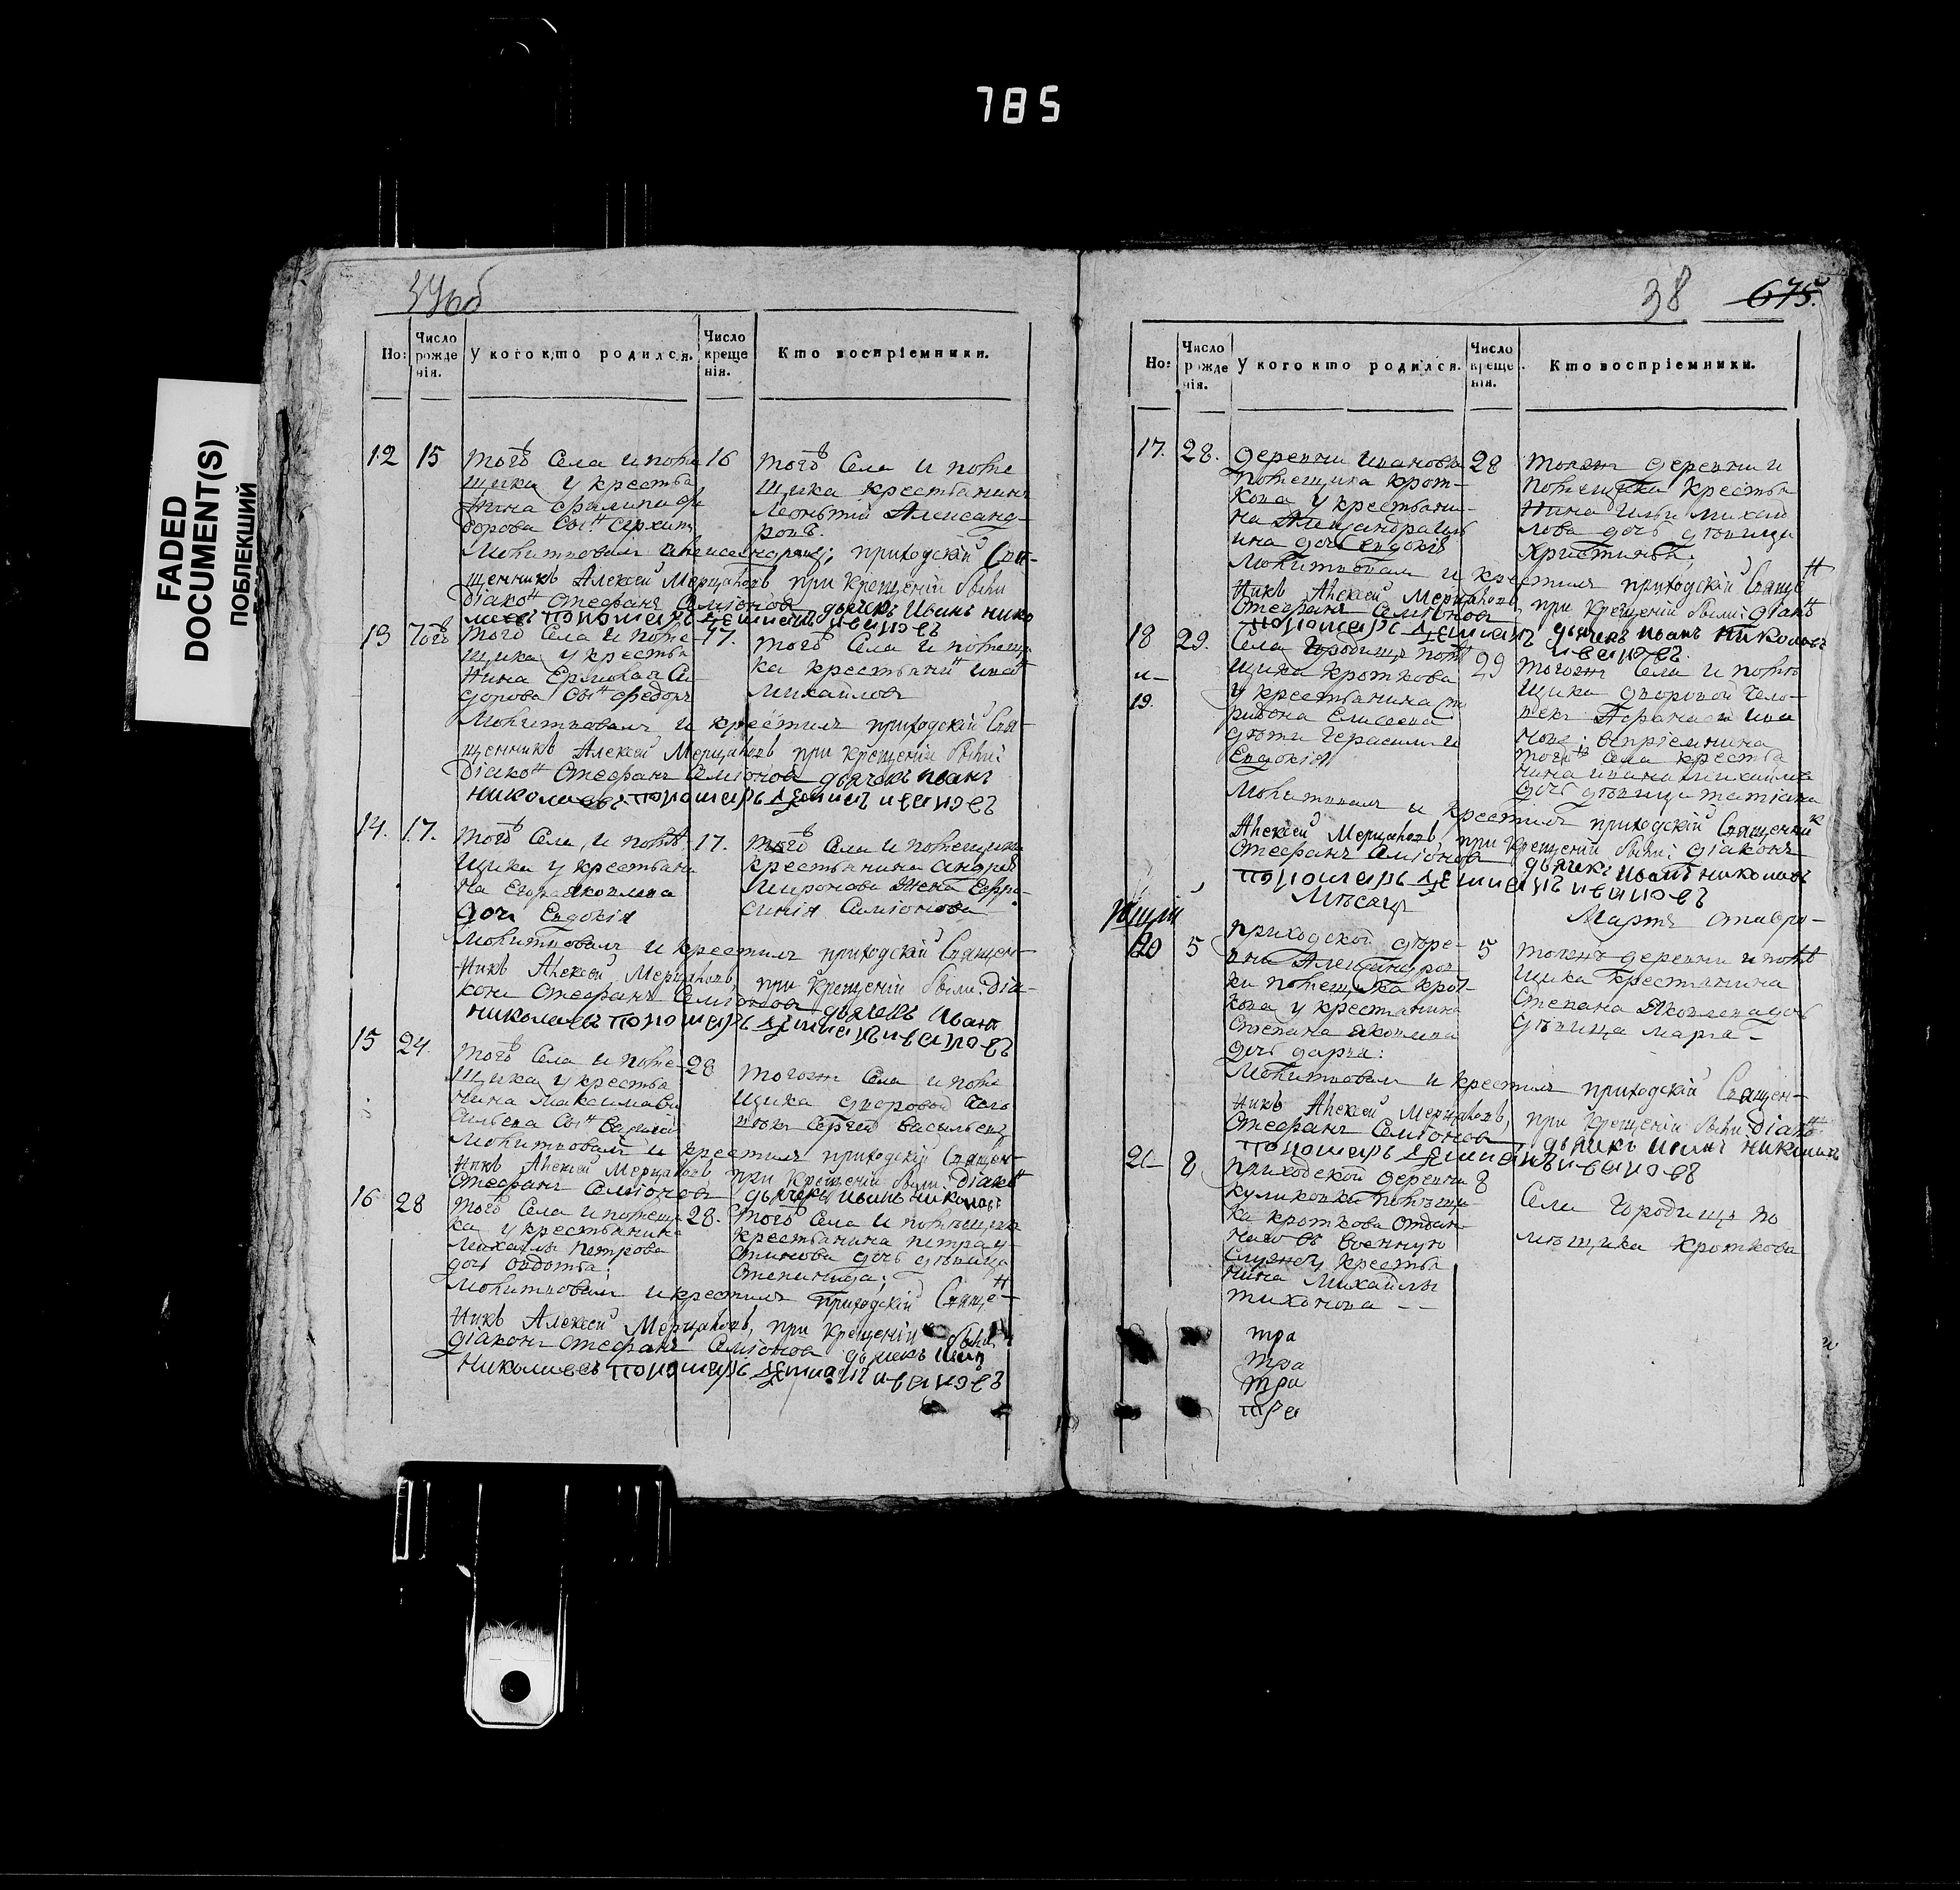 785
FADED
DOCUMENT(S)
ПОБЛЕКШИЙ
37об
38 675.
Но: Число рожденія. У кого кто родился. Число крещенія. Кто воспріемники.
12 15 того Села и поме 16
щика у крестья
нина филипа фи
дорова Сы н
того Села и поме
щика крестьянинъ
Леонтій Александ
ровъ.
Молитвовалъ приходскій Свя-
щенникъ Алексей Мерцаловъ при Крещеніи были
Діаконъ Стефанъ Симіонов дьячекъ Иванъ Нико
лаевъ пономарь
13 того Села и поме 17.
щика у крестья
нина Ермолая Си
дорова Сы н федоръ
того Села и помещи
ка крестьянинъ Иван
Михайловъ
Молитвовалъ и крестилъ приходскій Свя-
щенникъ Алексей Мерцаловъ при Крещеніи были:
Діаконъ Стефанъ Симіонов дьячекъ Иванъ
Николаевъ. пономарь
14. 17. того Села, и поме 17.
щика у крестьяни
на Егора Яковлева
дочь Евдокія
того Села и помещика
крестьянина Андрея
Миронова Жена Евфро
синія Симіонова
Молитвовалъ и крестилъ приходскій Священ-
никъ Алексей Мерцаловъ, при Крещеніи были: Діа-
конъ Стефанъ Симіонов дьячекъ Иванъ
Николаевъ пономарь
15 24. того Села и поме 28
щика у крестья
нина Максима Ва
сильева Сы н
тогож Села и поме
щика дворовой чело
векъ Сергей Васильевъ
Молитвовалъ и крестилъ приходскій Священ-
никъ Алексей Мерцаловъ, при Крещеніи были: Діакон
Стефанъ Симіонов дьячекъ Иванъ Николаевъ
16 28 того Села и помещи 28.
ка у крестьянина
Михайлы Петрова
дочь
того Села и помещика
крестьянина Петра
дочь девица
Степанида;
Молитвовалъ и крестилъ приходскій Свяще н
никъ Алексей Мерцаловъ, при Крещеніи были
діаконъ Стефанъ Симіонов дьячекъ Иванъ
Николаевъ пономарь
Но: Число рожденія. У кого кто родился. Число крещенія. Кто воспріемники.
17. 28. Деревни Ивановки 28
Помещика Крот-
кова у крестьяни-
на Александра
ина дочь Евдокія
тояж деревни и
помещика Крестья
нина Ильи Михай
лова дочь девица
Христинья;
Молитвовалъ и крестилъ приходскій Свяще н
никъ Алексей Мерцаловъ, при Крещеніи были: діаконъ
Стефанъ Симіонов дьячекъ Иванъ Николаевъ
пономарь
18 29. Села Городищъ поме 29
и- щика Кроткова
19. у крестьянина Спи
ридона Елисеева
дети Герасимъ и
Евдокія
тогож Села и поме
щика дворовой чело-
векъ Афанасей Ива
новъ: воспріемница
того Села крестья
нина Ивана Михайлова
дочь девица татіана
Молитвовалъ и крестилъ приходскій Священник
Алексей Мерцаловъ, при Крещеніи были: діаконъ
Стефанъ Симіонов дьячекъ Иванъ Николаевъ
пономарь
Месяцъ Мартъ
20 5 приходской дере- 5
вни Александров
ки помещика Крот-
кова у крестьянина
Степана Яковлева
дочь дарья:
тояж деревни и поме
щика крестьянина
Степана Яковлева дочь
девица марѳа-
Молитвовалъ и крестилъ приходскій Священ-
никъ Алексей Мерцаловъ, при Крещеніи были: Діакон
Стефанъ Симіонов дьячекъ Иванъ Николаевъ
пономарь
21- 8 приходской деревни 8
Куликовки помещи
ка Кроткова отдан
наго въ военную
Службу крестья
нина Михайлы
тихонова --
Села Городищъ по
мещика Кроткова
тра
тра
тра
тра